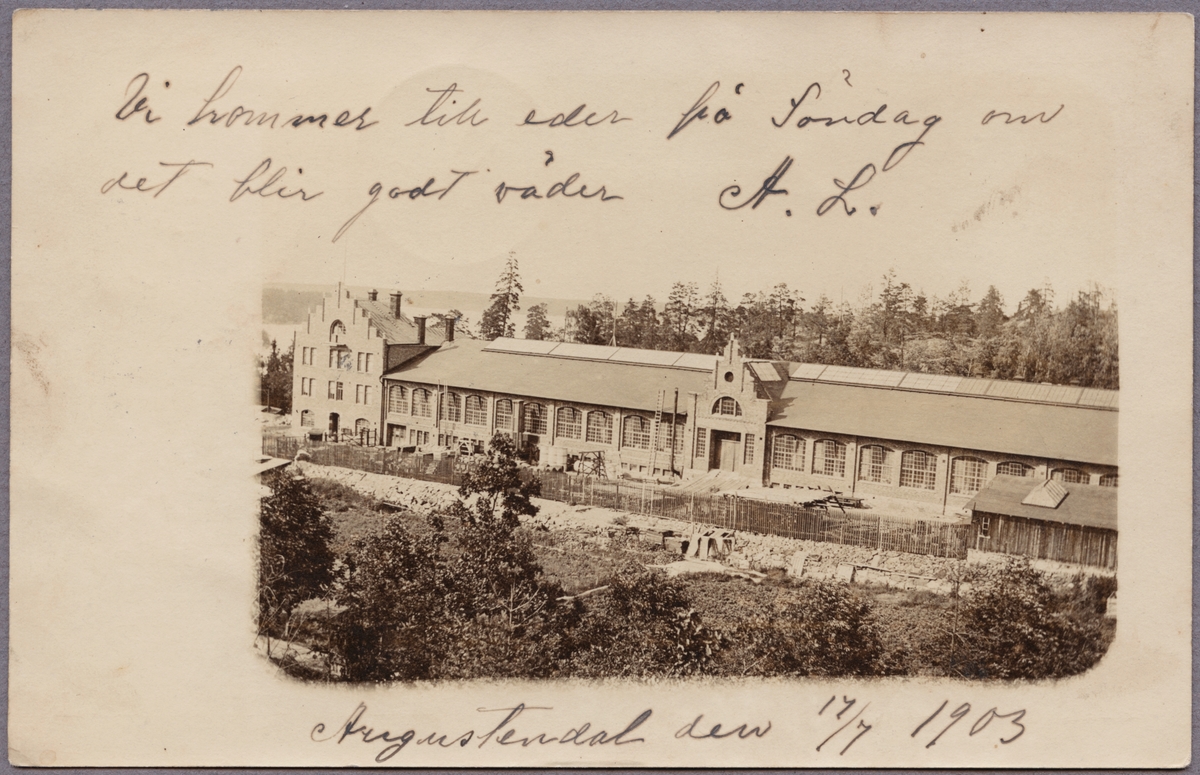 Vi kommer till eder på Söndag om
det blir godt väder A. L.
Augustendal den 17/7 1903